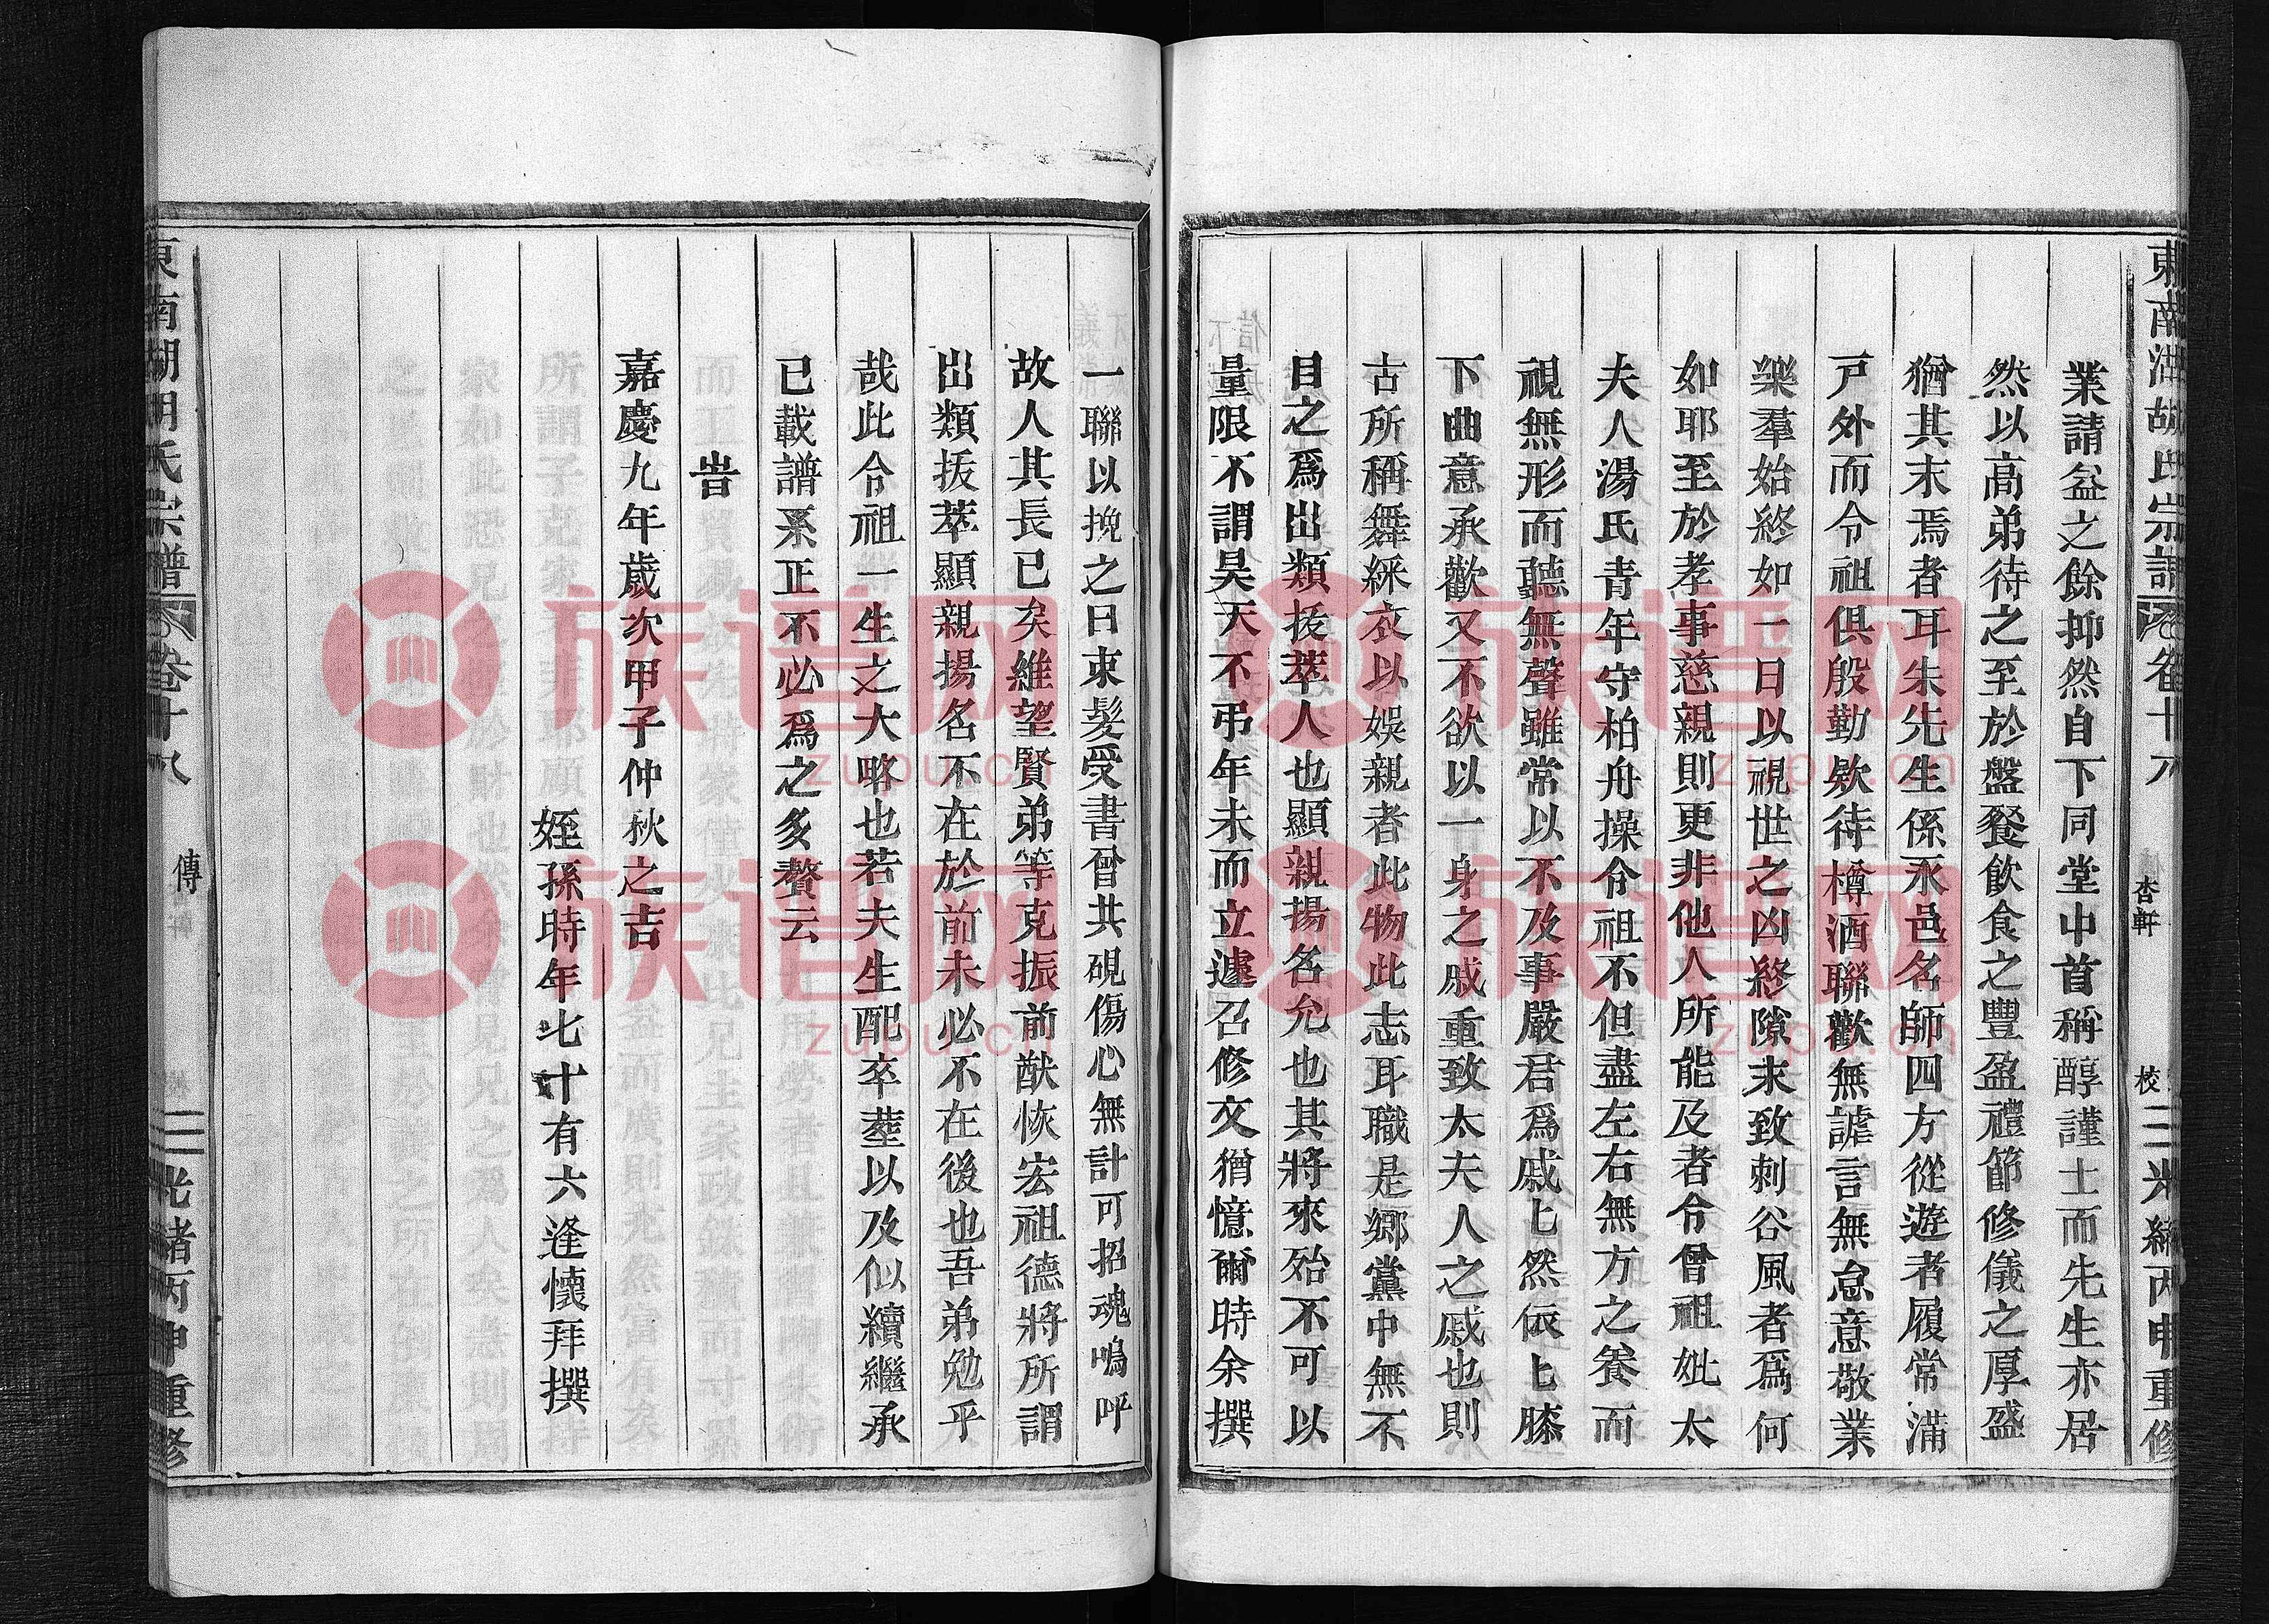 東南湖胡氏宗譜 卷十八 杏軒 校 二 光緒丙申重修
業請益之餘抑然自下同堂中首稱醇謹士而先生亦居
然以高弟待之至於盤餐飲食之豐盈禮節修儀之厚盛
猶其末焉者耳朱先生係永邑名師四方從遊者履常滿
戸外而令祖俱殷勤欵待樽酒聯歡無謔言無怠意敬業
樂羣始終如一日以視世之凶終隙末致刺谷風者爲何
如耶至於孝事慈親則更非他人所能及者令曾祖妣太
夫人湯氏青年守柏舟操令祖不但盡左右無方之養而
視無形而聽無聲雖常以不及事嚴君爲戚匕然依匕膝
下曲意承歡又不欲以一身之戚重致太夫人之戚也則
古所稱舞綵衣以娛親者此物此志耳職是鄉黨中無不
目之爲出類拔萃人也顯親揚名允也其將來殆不可以
量限不謂昊天不弔年未而立遽召修文猶憶爾時余撰
一聯以挽之曰束髮受書曾共硯傷心無計可招魂嗚呼
故人其長已矣維望賢弟等克振前猷恢宏祖德將所謂
出類拔萃顯親揚名不在於前未必不在後也吾弟勉乎
哉此令祖一生之大略也若夫生配卒塟以及似續繼承
已載譜系正不必爲之多贅云
旹
嘉慶九年歲次甲子仲秋之吉
姪孫時年七十有六逢懷拜撰
東南湖胡氏宗譜 卷十八 傳 二 光緒丙申重修
族谱网
zupu.cn
族谱网
zupu.cn
族谱网
zupu.cn
族谱网
zupu.cn